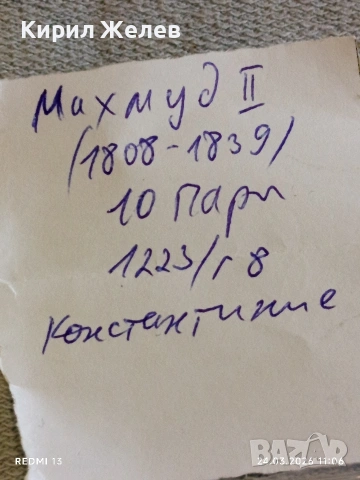 Кирил Желев
Махмуд II
(1808-1839)
10 Пари
1223/г 8
Константиние
REDMI 13
24.03.2026 11:06
BAZAR